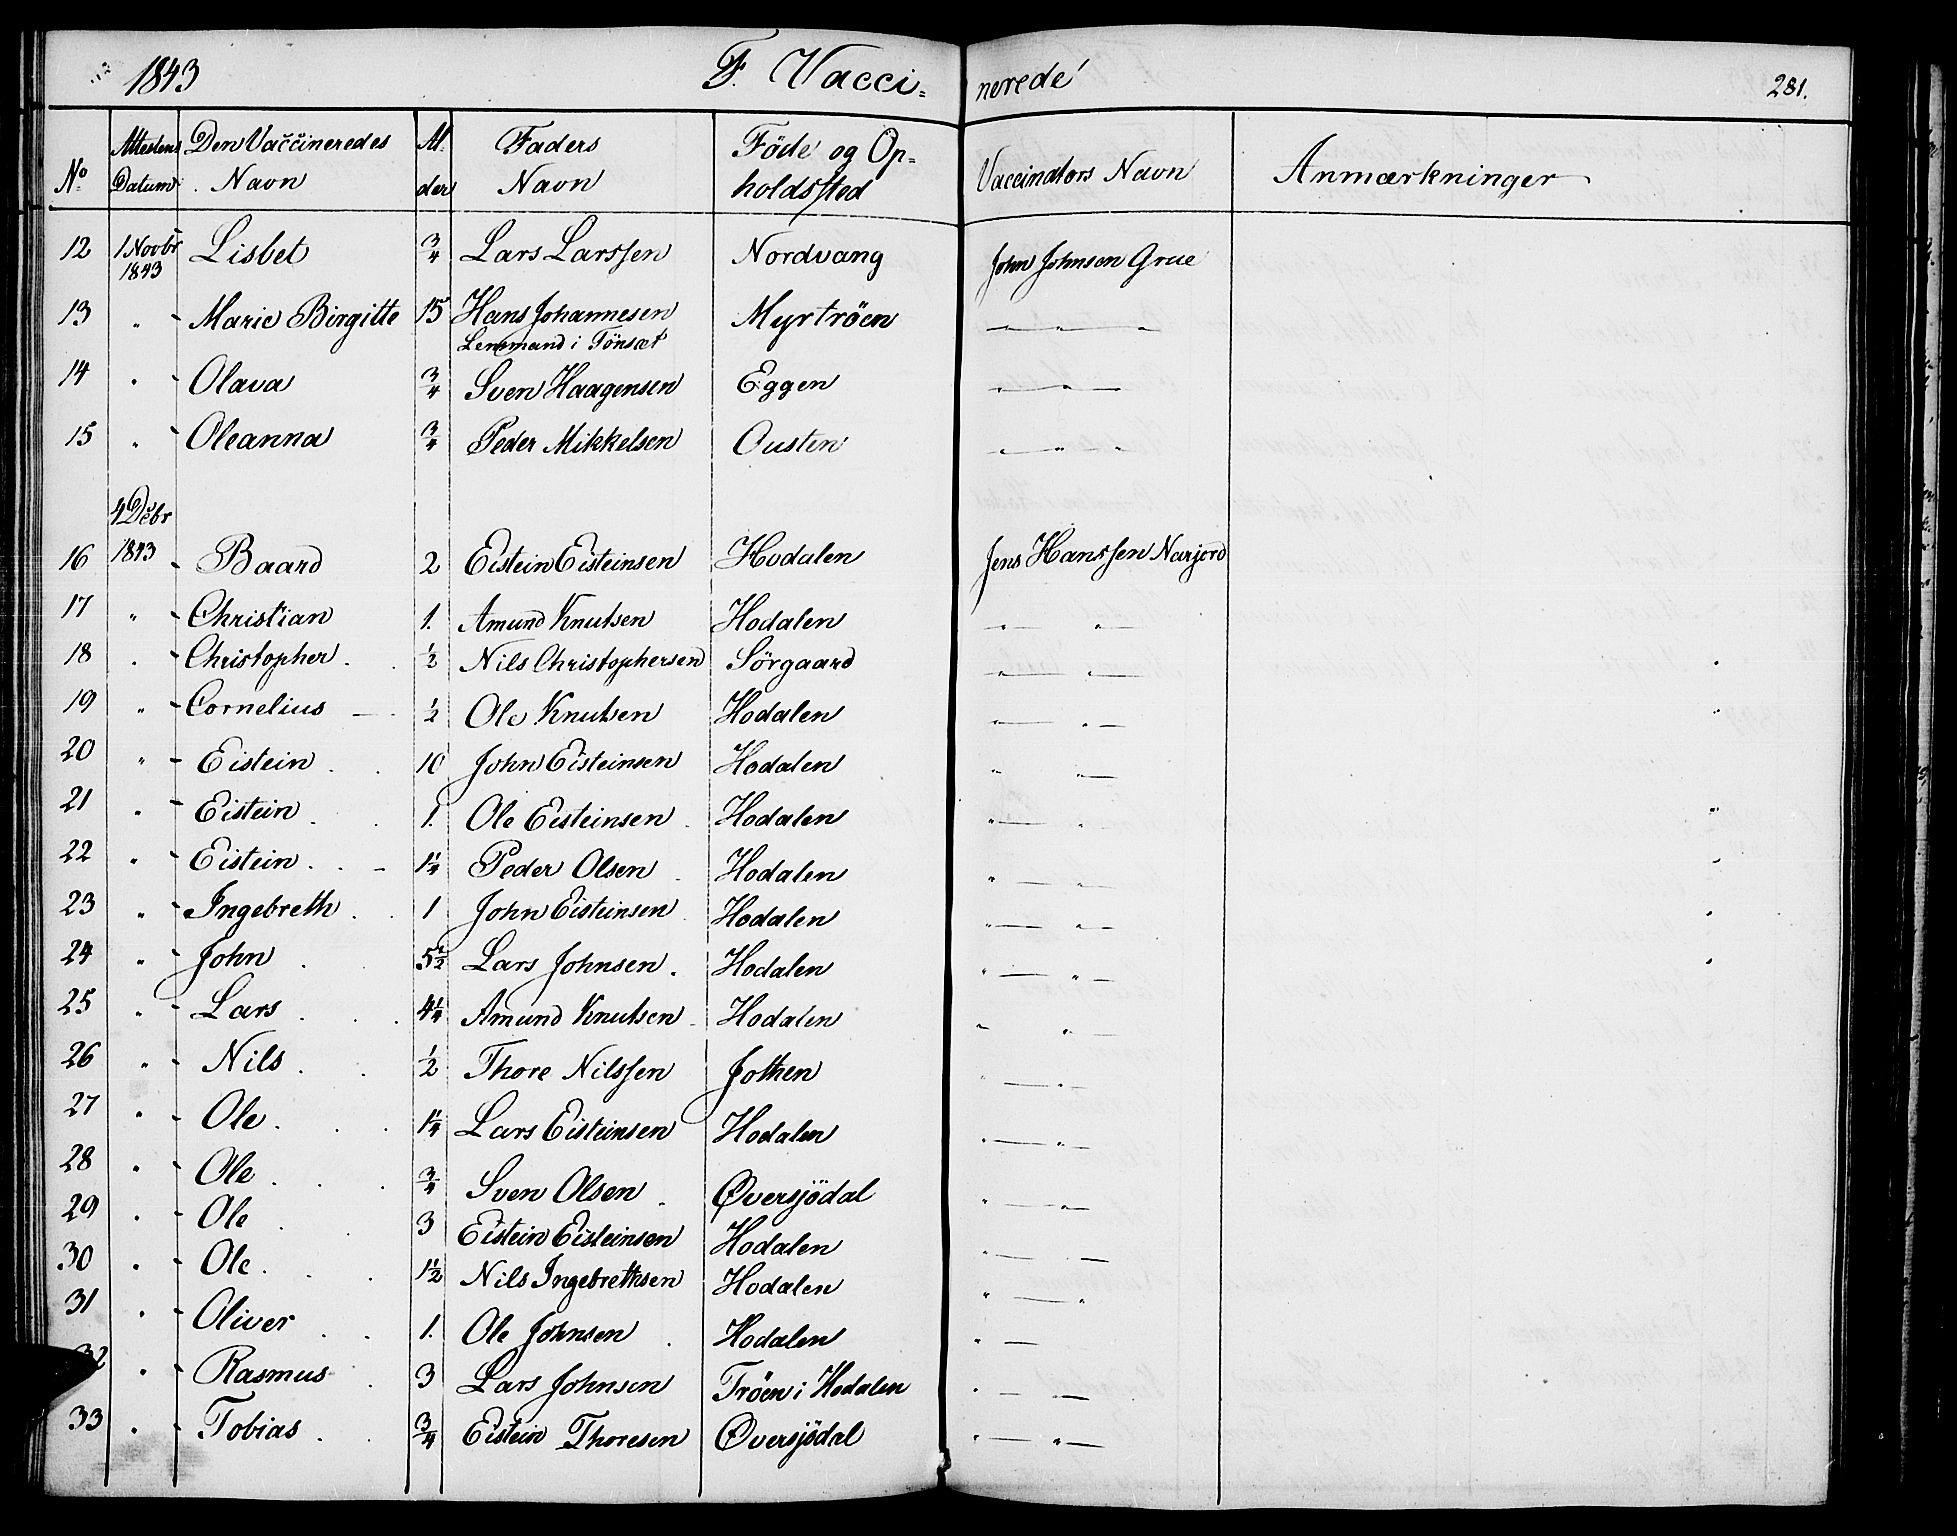 1843 F. Vacci= nerede 281.
No Attestens Datum Den Vaccineredes Navn Al. der Faders Navn Föde og Op= holdssted Vaccinators Navn Anmærkninger
12 1 Novbr 1843 Lisbet 3/4 Lars Larssen Nordvang John Johnsen Grue
13 " - Marie Birgitte 15 Hans Johannesen Myrtröen " " "
Lensmand i Tönset
14 " - Olava 3/4 Sven Haagensen Eggen " " "
15 " - Oleanna 3/4 Peder Mikkelsen Ousten " " "
4 Decbr
16 1843 - Baard 2 Eistein Eisteinsen Hodalen Jens Hanssen Narjord
17 " - Christian 1. Amund Knutsen Hodalen " "
18 " - Christopher 1/2 Nils Christophersen Sörgaard " "
19 " - Cornelius 1/2 Ole Knutsen Hodalen " "
20 " - Eistein 10 John Eisteinsen Hodalen " "
21 " - Eistein 1. Ole Eisteinsen Hodalen " "
22 " - Eistein 1 1/4 Peder Olsen Hodalen " "
23 " - Ingebreth 1 John Eisteinsen Hodalen " "
24 " - John 5 1/2 Lars Johnsen Hodalen " "
25 " - Lars 4 1/4 Amund Knutsen Hodalen " "
26 " - Nils 1/2 Thore Nilssen Jothen " "
27 " - Ole 1 1/4 Lars Eisteinsen Hodalen " "
28 " - Ole 3/4 Sven Olsen Øversjödal " "
29 " - Ole 3 Eistein Eisteinsen Hodalen " "
30 " - Ole 1 1/2 Nils Ingebrethsen Hodalen " "
31 " - Oliver 1. Ole Johnsen Hodalen "
32 " - Rasmus 3 Lars Johnsen Tröen i Hodalen " "
33 " - Tobias 3/4 Eistein Thoresen Øversjödal " "